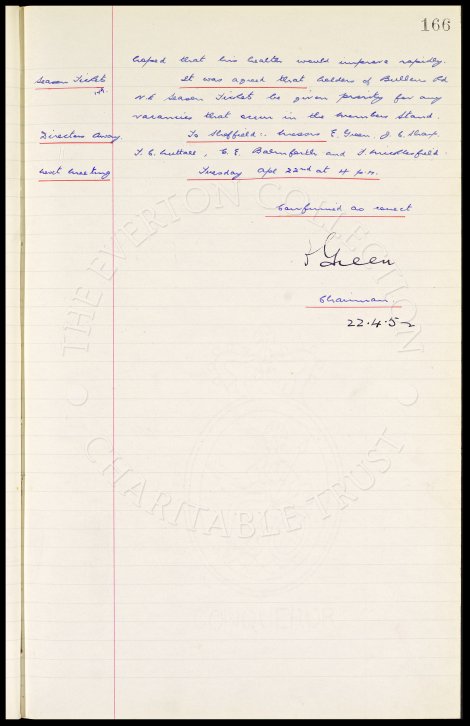 166
hoped that his health would improve rapidly.
Season Tickets It was agreed that holders of Bullens Rd
N.E. Season Tickets be given priority for any
vacancies that occur in the Members Stand.
Directors Away. To Sheffield:. Messrs E. Green, J. C. Sharp,
T. C. Nuttall, C. E. Balmforth and F. Micklesfield.
Next Meeting Tuesday Apl 22nd at 4 p.m.
Confirmed as correct
Green
Chairman.
22.4.52
THE EVERTON COLLECTION
CHARITABLE TRUST
CONQUEROR